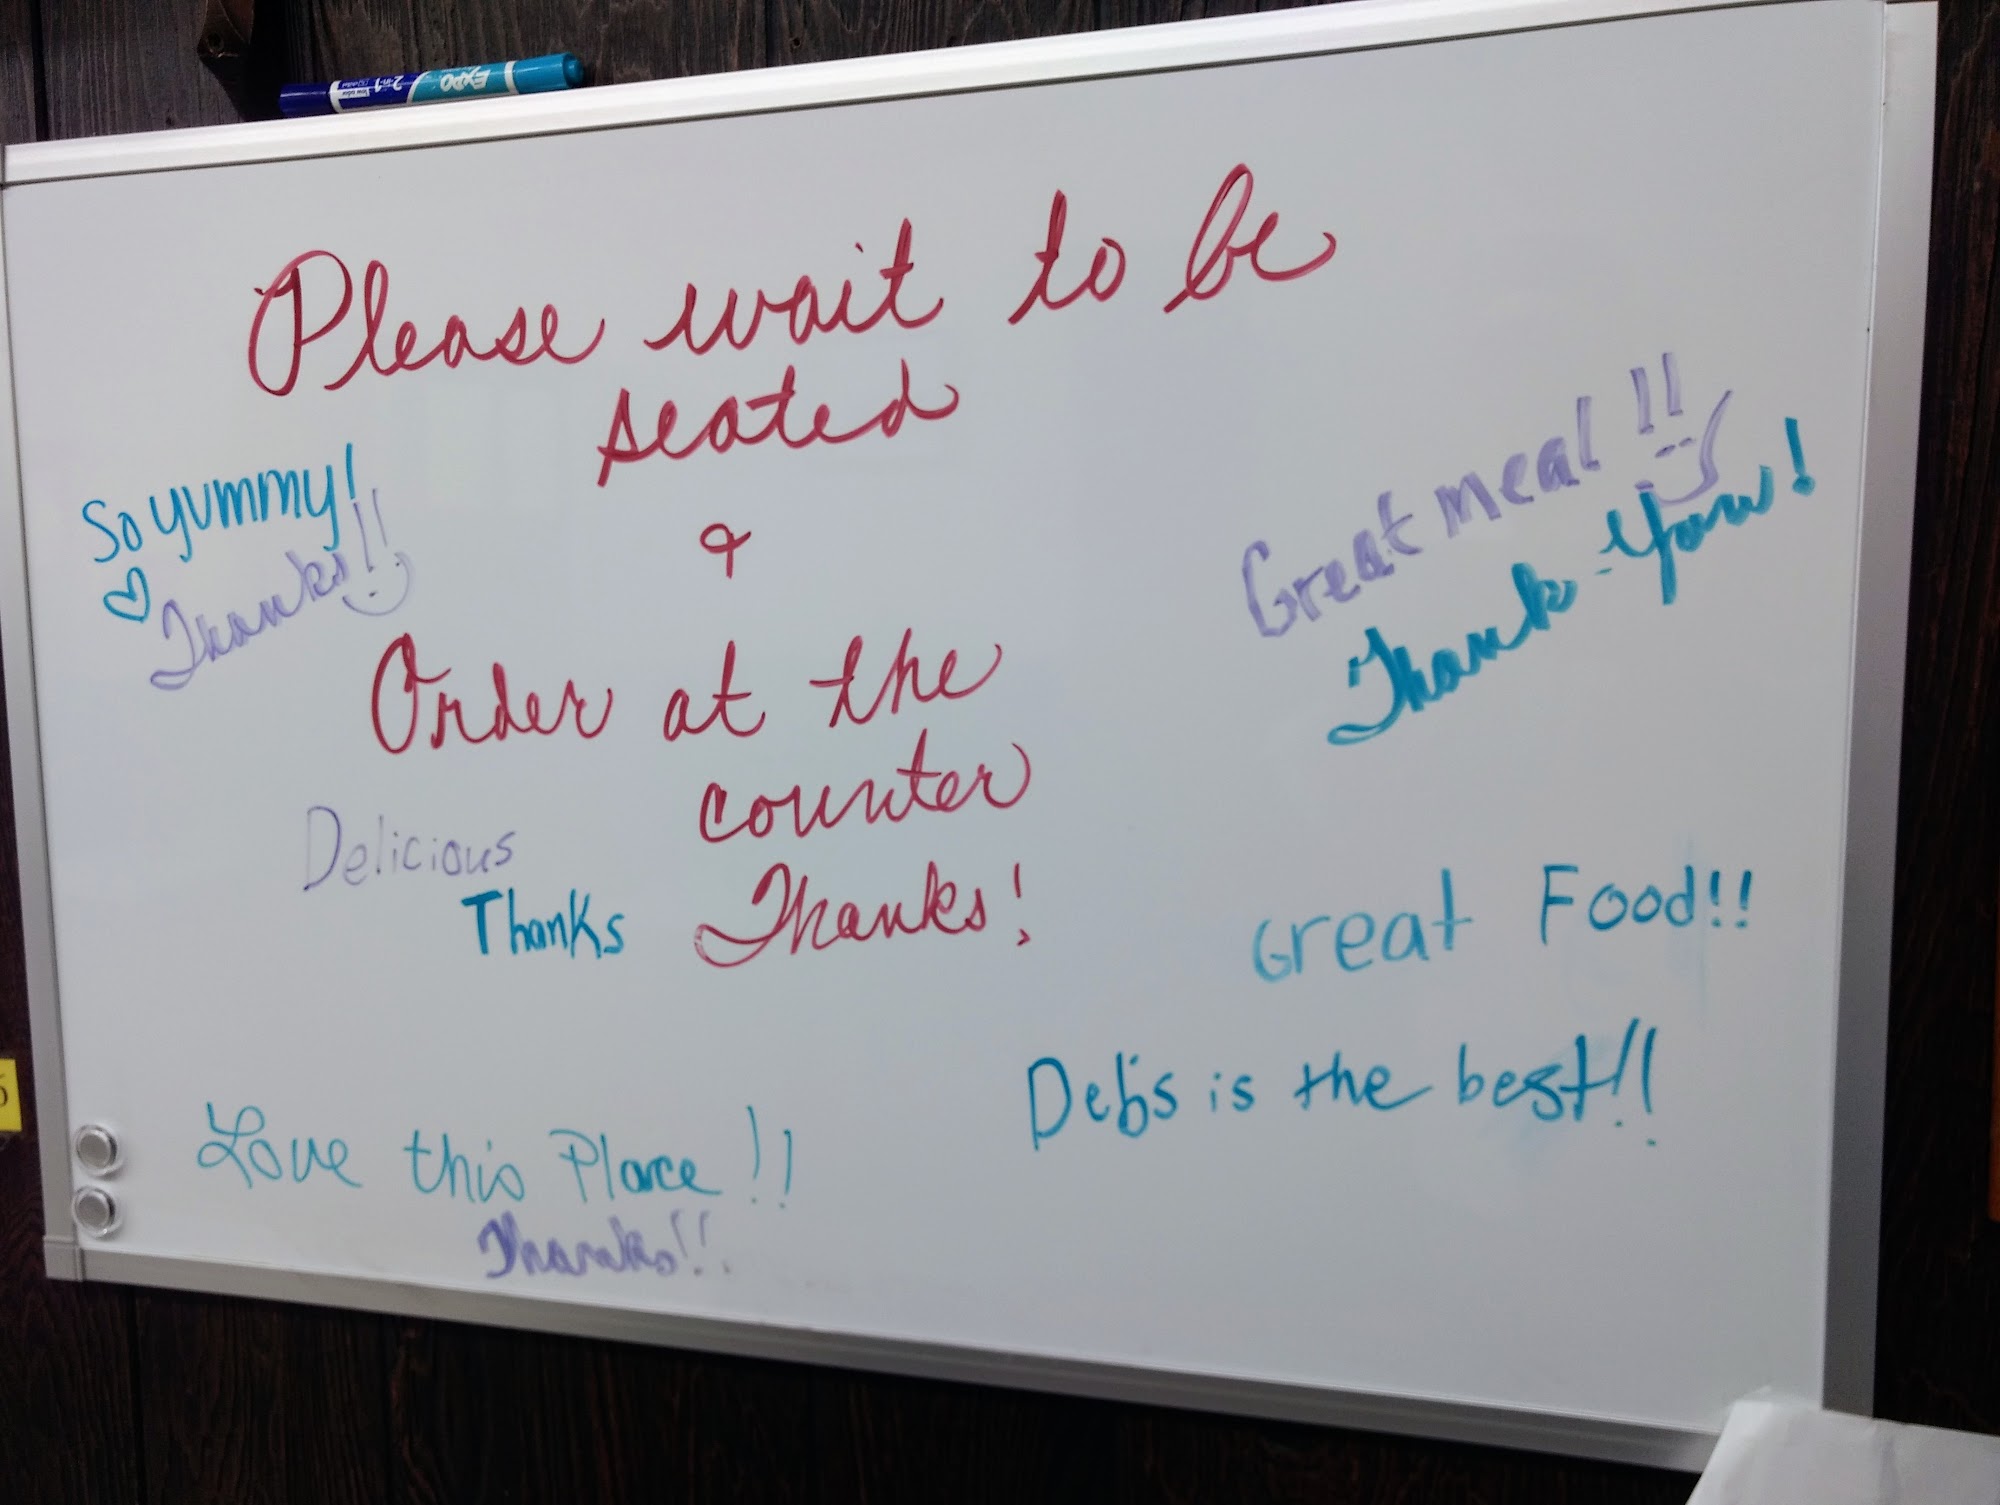 EXPO
2-in-1
low odor
Please wait to be
seated
&
So yummy!
Thanks!!
Great meal!!
Thank-You!
Order at the
counter
Thanks!
Delicious
Thanks
Great Food!!
Deb's is the best!!
Love this Place!!
Thanks!!